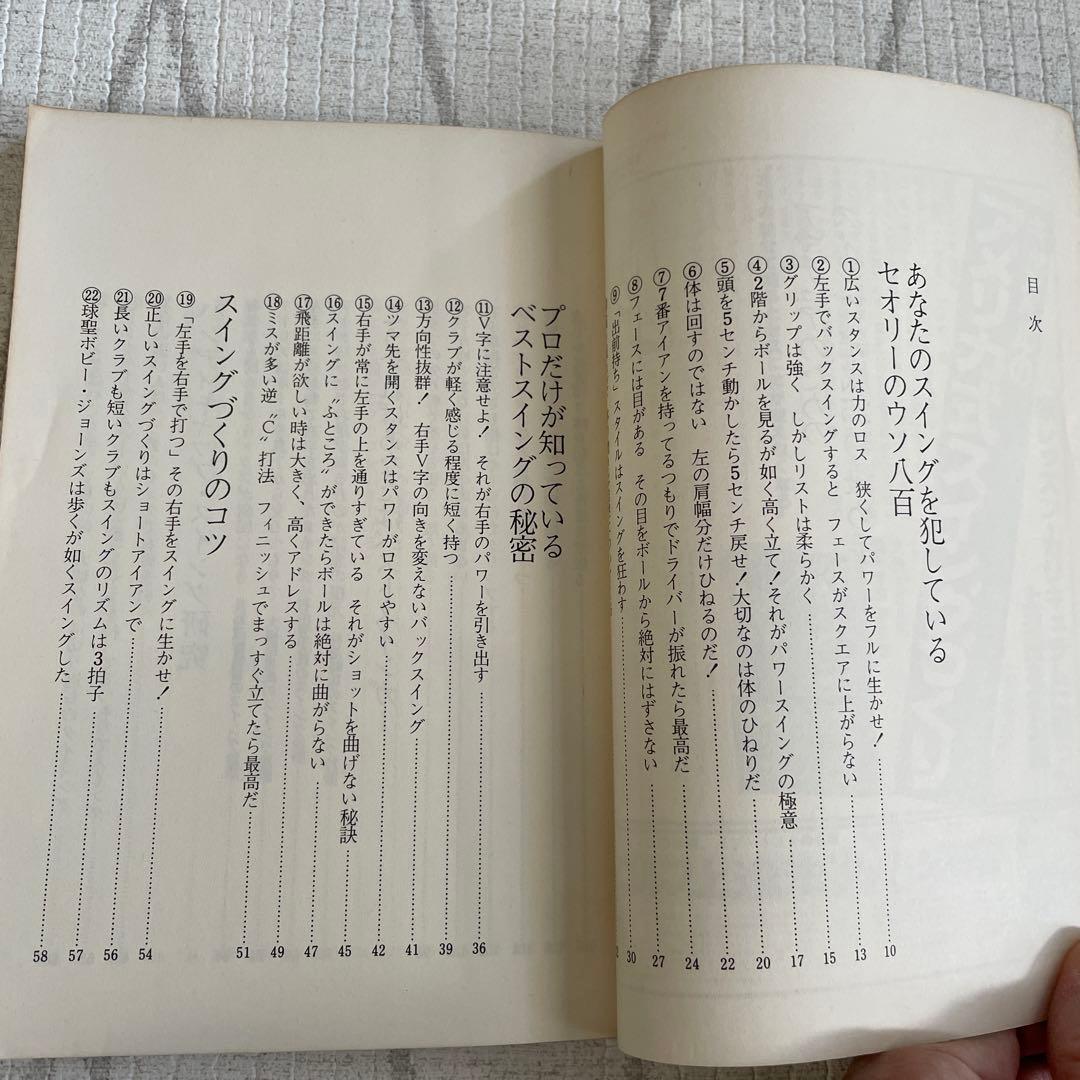 目次
あなたのスイングを犯している
セオリーのウソ八百
①広いスタンスは力のロス　狭くしてパワーをフルに生かせ！……10
②左手でバックスイングすると　フェースがスクエアに上がらない……13
③グリップは強く　しかしリストは柔らかく……15
④2階からボールを見るが如く高く立て！それがパワースイングの極意……17
⑤頭を5センチ動かしたら5センチ戻せ！大切なのは体のひねりだ……20
⑥体は回すのではない　左の肩幅分だけひねるのだ！……22
⑦7番アイアンを持ってるつもりでドライバーが振れたら最高だ……24
⑧フェースには目がある　その目をボールから絶対にはずさない……27
⑨「出前持ち」スタイルはスイングを狂わす……30
プロだけが知っている
ベストスイングの秘密
⑪V字に注意せよ！　それが右手のパワーを引き出す……36
⑫クラブが軽く感じる程度に短く持つ……39
⑬方向性抜群！　右手V字の向きを変えないバックスイング……41
⑭ツマ先を開くスタンスはパワーがロスしやすい……42
⑮右手が常に左手の上を通りすぎている　それがショットを曲げない秘訣……45
⑯スイングに〝ふところ〟ができたらボールは絶対に曲がらない……47
⑰飛距離が欲しい時は大きく、高くアドレスする……49
⑱ミスが多い逆〝C〟打法　フィニッシュでまっすぐ立てたら最高だ……51
スイングづくりのコツ
⑲「左手を右手で打つ」その右手をスイングに生かせ！……54
⑳正しいスイングづくりはショートアイアンで……56
㉑長いクラブも短いクラブもスイングのリズムは3拍子……57
㉒球聖ボビー・ジョーンズは歩くが如くスイングした……58